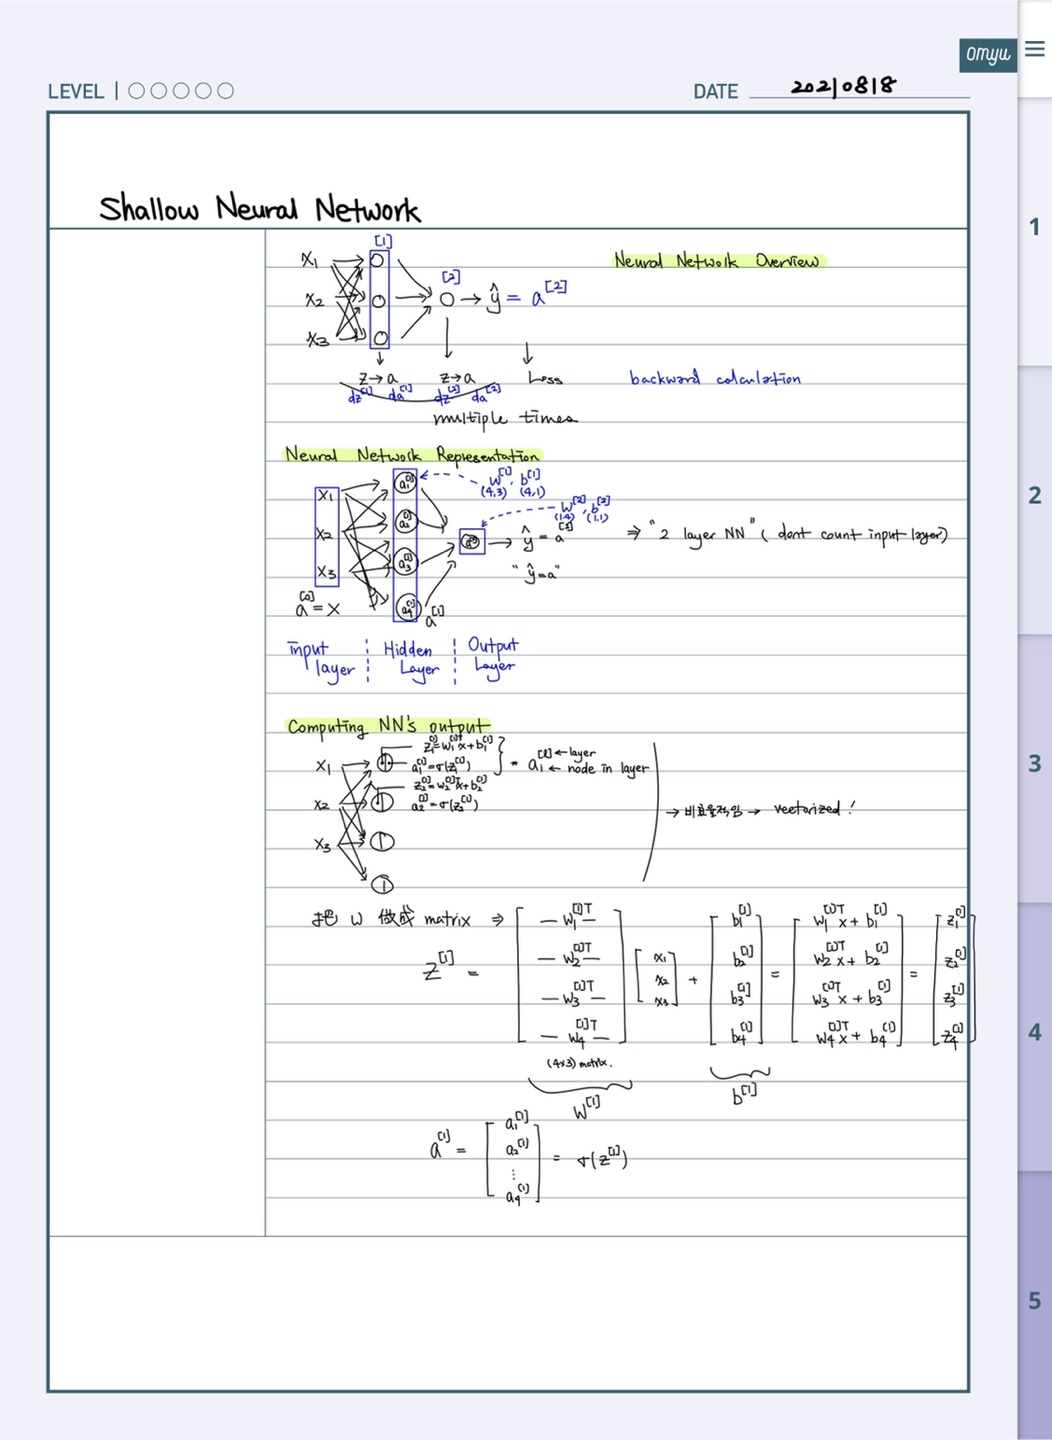 omyu
LEVEL | ○○○○○
DATE 20210818
Shallow Neural Network
[1]
x₁
x₂
x₃
[2]
→ ŷ = a^[2]
Neural Network Overview
z→a z→a Loss
dz^[1] da^[1] dz^[2] da^[2]
backward calculation
multiple times
Neural Network Representation
x₁
x₂
x₃
a₁^[1]
a₂^[1]
a₃^[1]
a₄^[1]
a^[1]
w^[1], b^[1]
(4,3) (4,1)
w^[2], b^[2]
(1,4) (1,1)
a^[2] → ŷ = a^[2]
"ŷ=a"
⇒ "2 layer NN" (dont count input layer)
a^[0] = x
input layer
Hidden Layer
Output Layer
Computing NN's output
x₁
x₂
x₃
z₁^[1] = w₁^[1]T x + b₁^[1]
a₁^[1] = σ(z₁^[1])
z₂^[1] = w₂^[1]T x + b₂^[1]
a₂^[1] = σ(z₂^[1])
a_i^[l] ← layer
← node in layer
→ 비효율적임 → vectorized!
把 w 做成 matrix ⇒
z^[1] = [ — w₁^[1]T — — w₂^[1]T — — w₃^[1]T — — w₄^[1]T — ] [ x₁ x₂ x₃ ] + [ b₁^[1] b₂^[1] b₃^[1] b₄^[1] ] = [ w₁^[1]T x + b₁^[1] w₂^[1]T x + b₂^[1] w₃^[1]T x + b₃^[1] w₄^[1]T x + b₄^[1] ] = [ z₁^[1] z₂^[1] z₃^[1] z₄^[1] ]
(4x3) matrix.
W^[1]
b^[1]
a^[1] = [ a₁^[1] a₂^[1] ⋮ a₄^[1] ] = σ(z^[1])
1
2
3
4
5